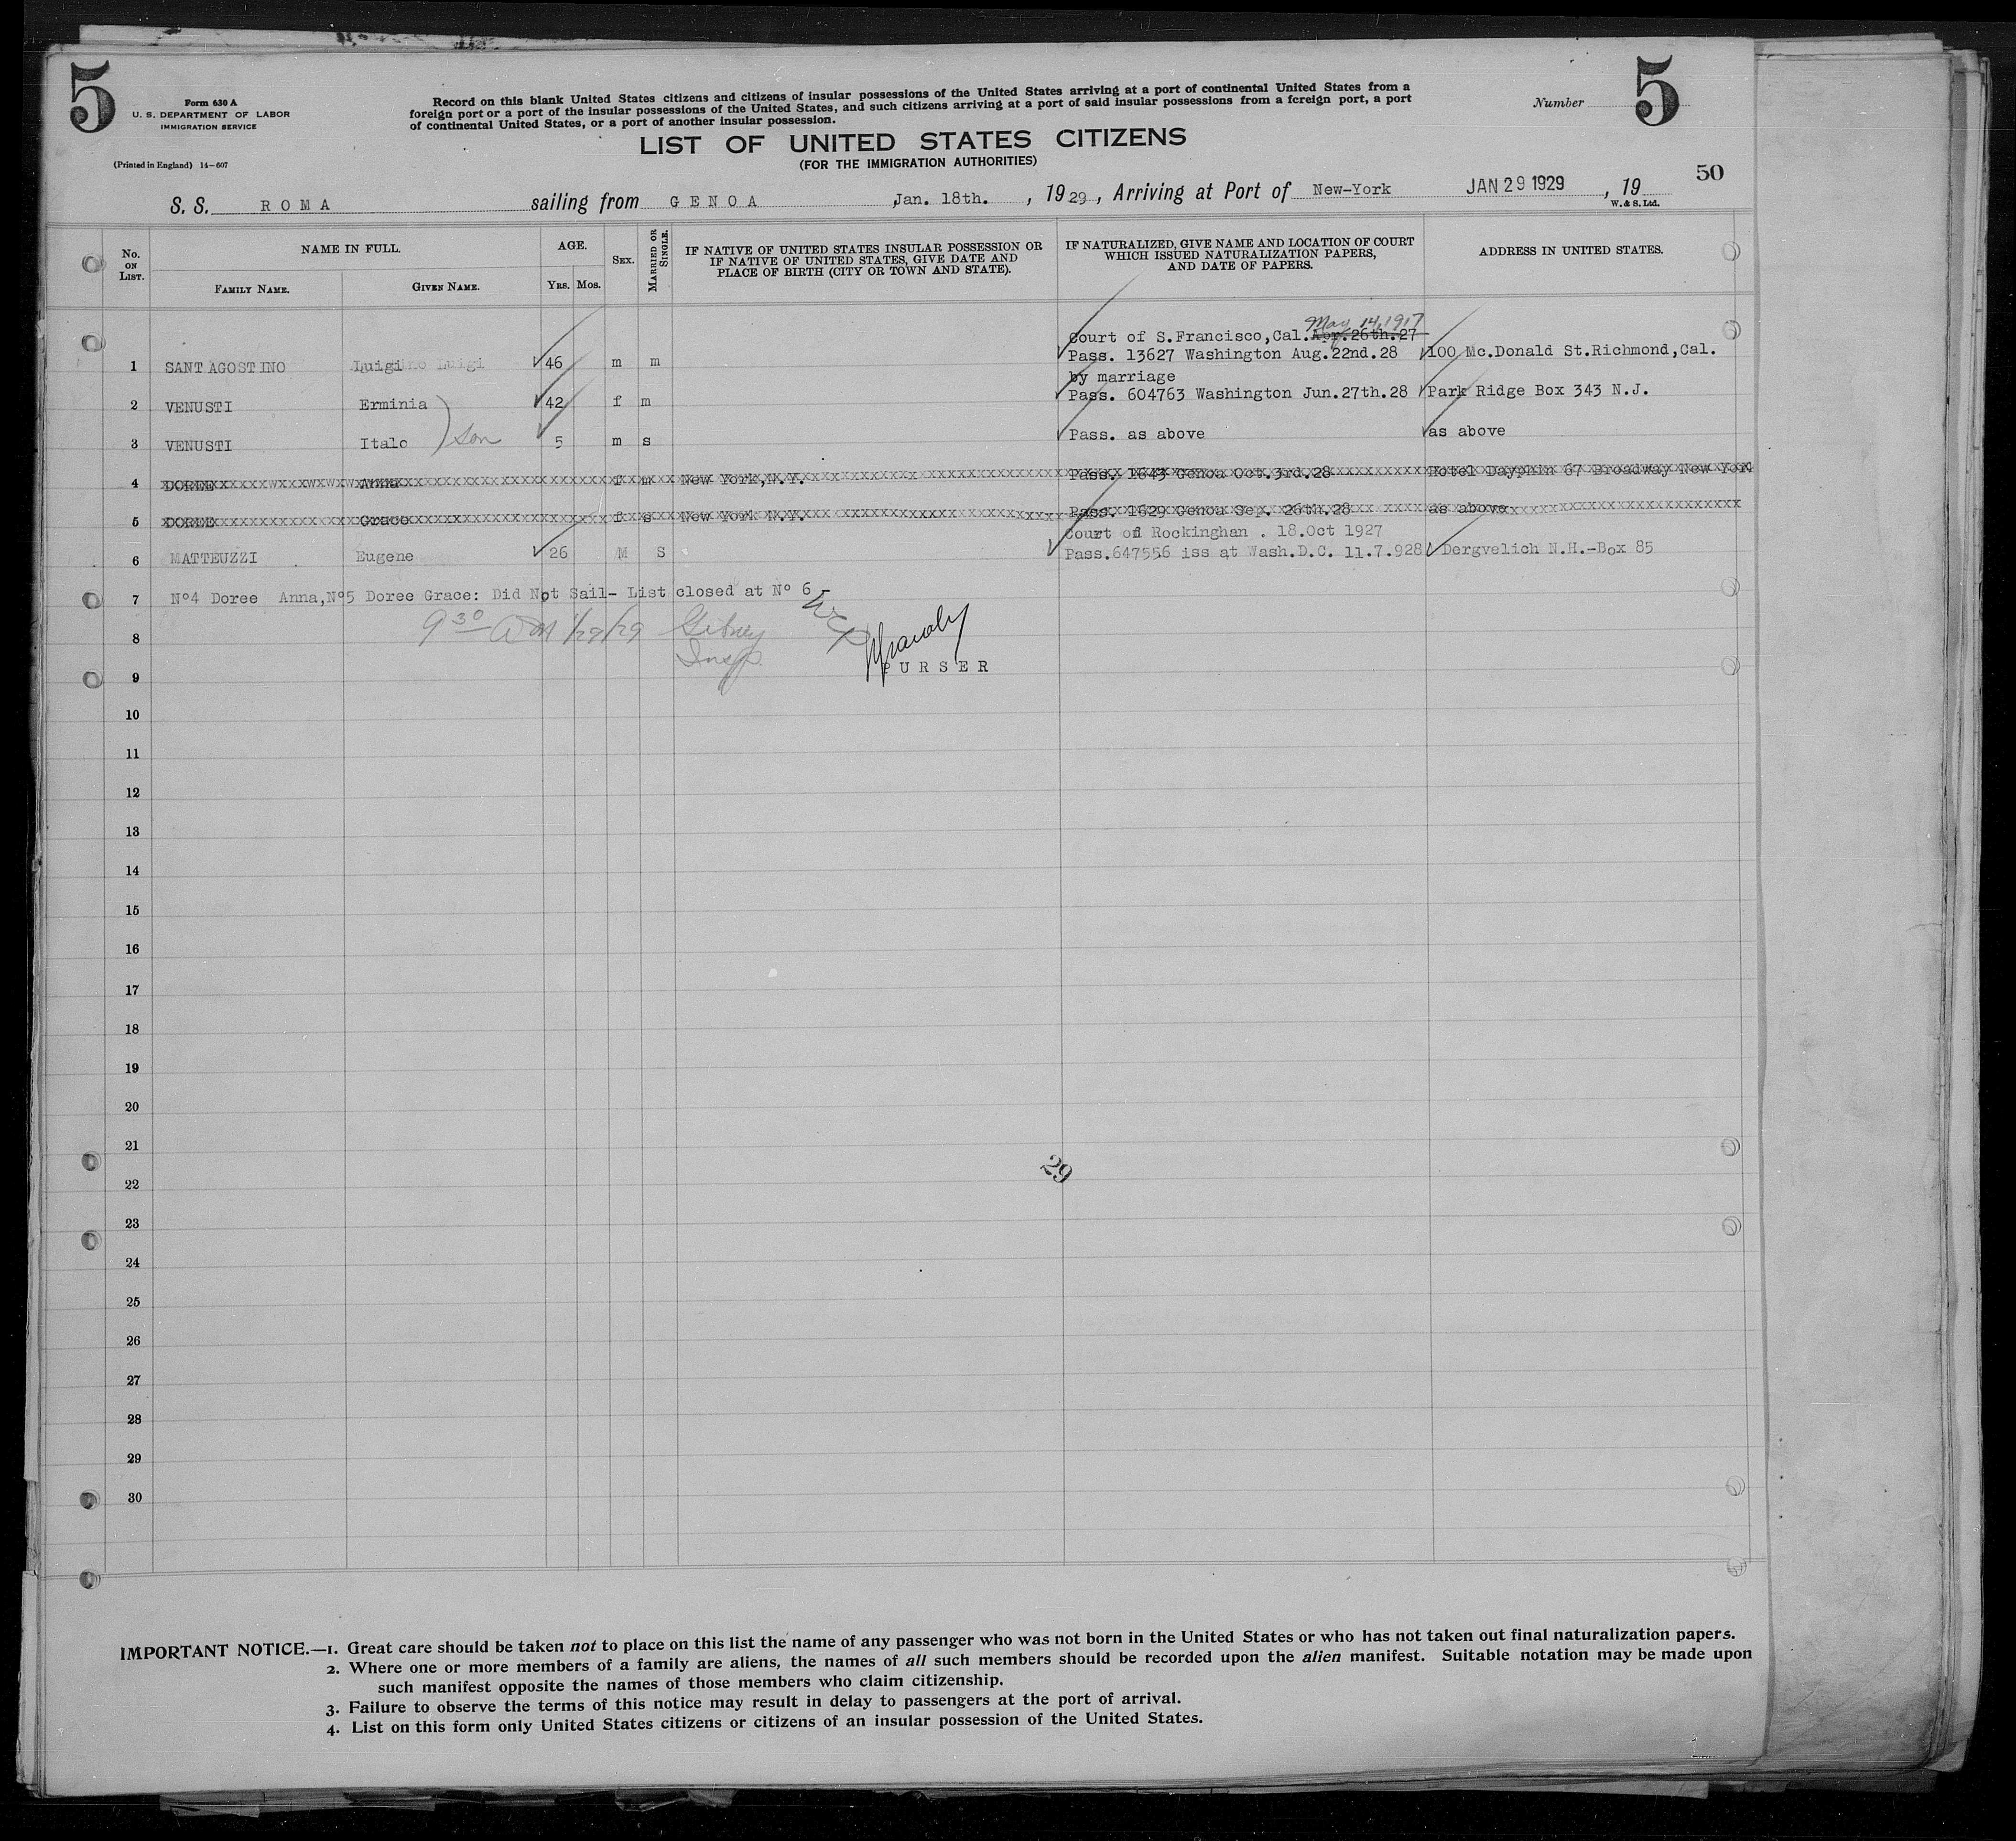 5
Form 630 A
U. S. DEPARTMENT OF LABOR
IMMIGRATION SERVICE
(Printed in England) 14-607
Record on this blank United States citizens and citizens of insular possessions of the United States arriving at a port of continental United States from a
foreign port or a port of the insular possessions of the United States, and such citizens arriving at a port of said insular possessions from a foreign port, a port
of continental United States, or a port of another insular possession.
Number 5
LIST OF UNITED STATES CITIZENS
(FOR THE IMMIGRATION AUTHORITIES)
50
S. S. ROMA sailing from GENOA , Jan. 18th. , 1929, Arriving at Port of New-York JAN 29 1929 , 19
W. & S. Ltd.
No. ON LIST. NAME IN FULL. FAMILY NAME. GIVEN NAME. AGE. YRS. MOS. SEX. MARRIED OR SINGLE. IF NATIVE OF UNITED STATES INSULAR POSSESSION OR IF NATIVE OF UNITED STATES, GIVE DATE AND PLACE OF BIRTH (CITY OR TOWN AND STATE). IF NATURALIZED, GIVE NAME AND LOCATION OF COURT WHICH ISSUED NATURALIZATION PAPERS, AND DATE OF PAPERS. ADDRESS IN UNITED STATES.
May 14, 1917
Court of S.Francisco,Cal. Apr.26th.27
1 SANTAGOSTINO Luigi 46 m m Pass. 13627 Washington Aug.22nd.28 100 Mc.Donald St.Richmond,Cal.
by marriage
2 VENUSTI Erminia 42 f m Pass. 604763 Washington Jun.27th.28 Park Ridge Box 343 N.J.
3 VENUSTI Italo ) Son 5 m s Pass. as above as above
4 DOREE Anna f m New York,N.Y. Pass. 1643 Genoa Oct.3rd.28 Hotel Dayphin 67 Broadway New York
5 DOREE Grace f s New York N.Y. Pass. 1629 Genoa Sep. 26th.28 as above
Court of Rockinghan . 18.Oct 1927
6 MATTEUZZI Eugene 26 M S Pass.647556 iss at Wash.D.C. 11.7.928 Dergvelich N.H.-Box 85
7 Nº4 Doree Anna,Nº5 Doree Grace: Did Not Sail- List closed at Nº 6
8 9 30 AM 1/29/29 Gibney
Insp.
PURSER
9
10
11
12
13
14
15
16
17
18
19
20
21
29
22
23
24
25
26
27
28
29
30
IMPORTANT NOTICE.—1. Great care should be taken not to place on this list the name of any passenger who was not born in the United States or who has not taken out final naturalization papers.
2. Where one or more members of a family are aliens, the names of all such members should be recorded upon the alien manifest. Suitable notation may be made upon
such manifest opposite the names of those members who claim citizenship.
3. Failure to observe the terms of this notice may result in delay to passengers at the port of arrival.
4. List on this form only United States citizens or citizens of an insular possession of the United States.